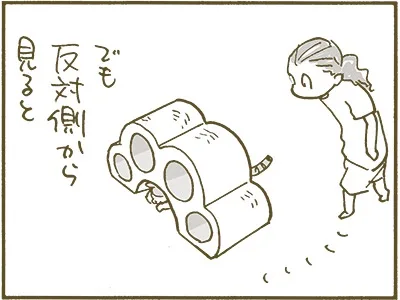 でも
反対側から
見ると